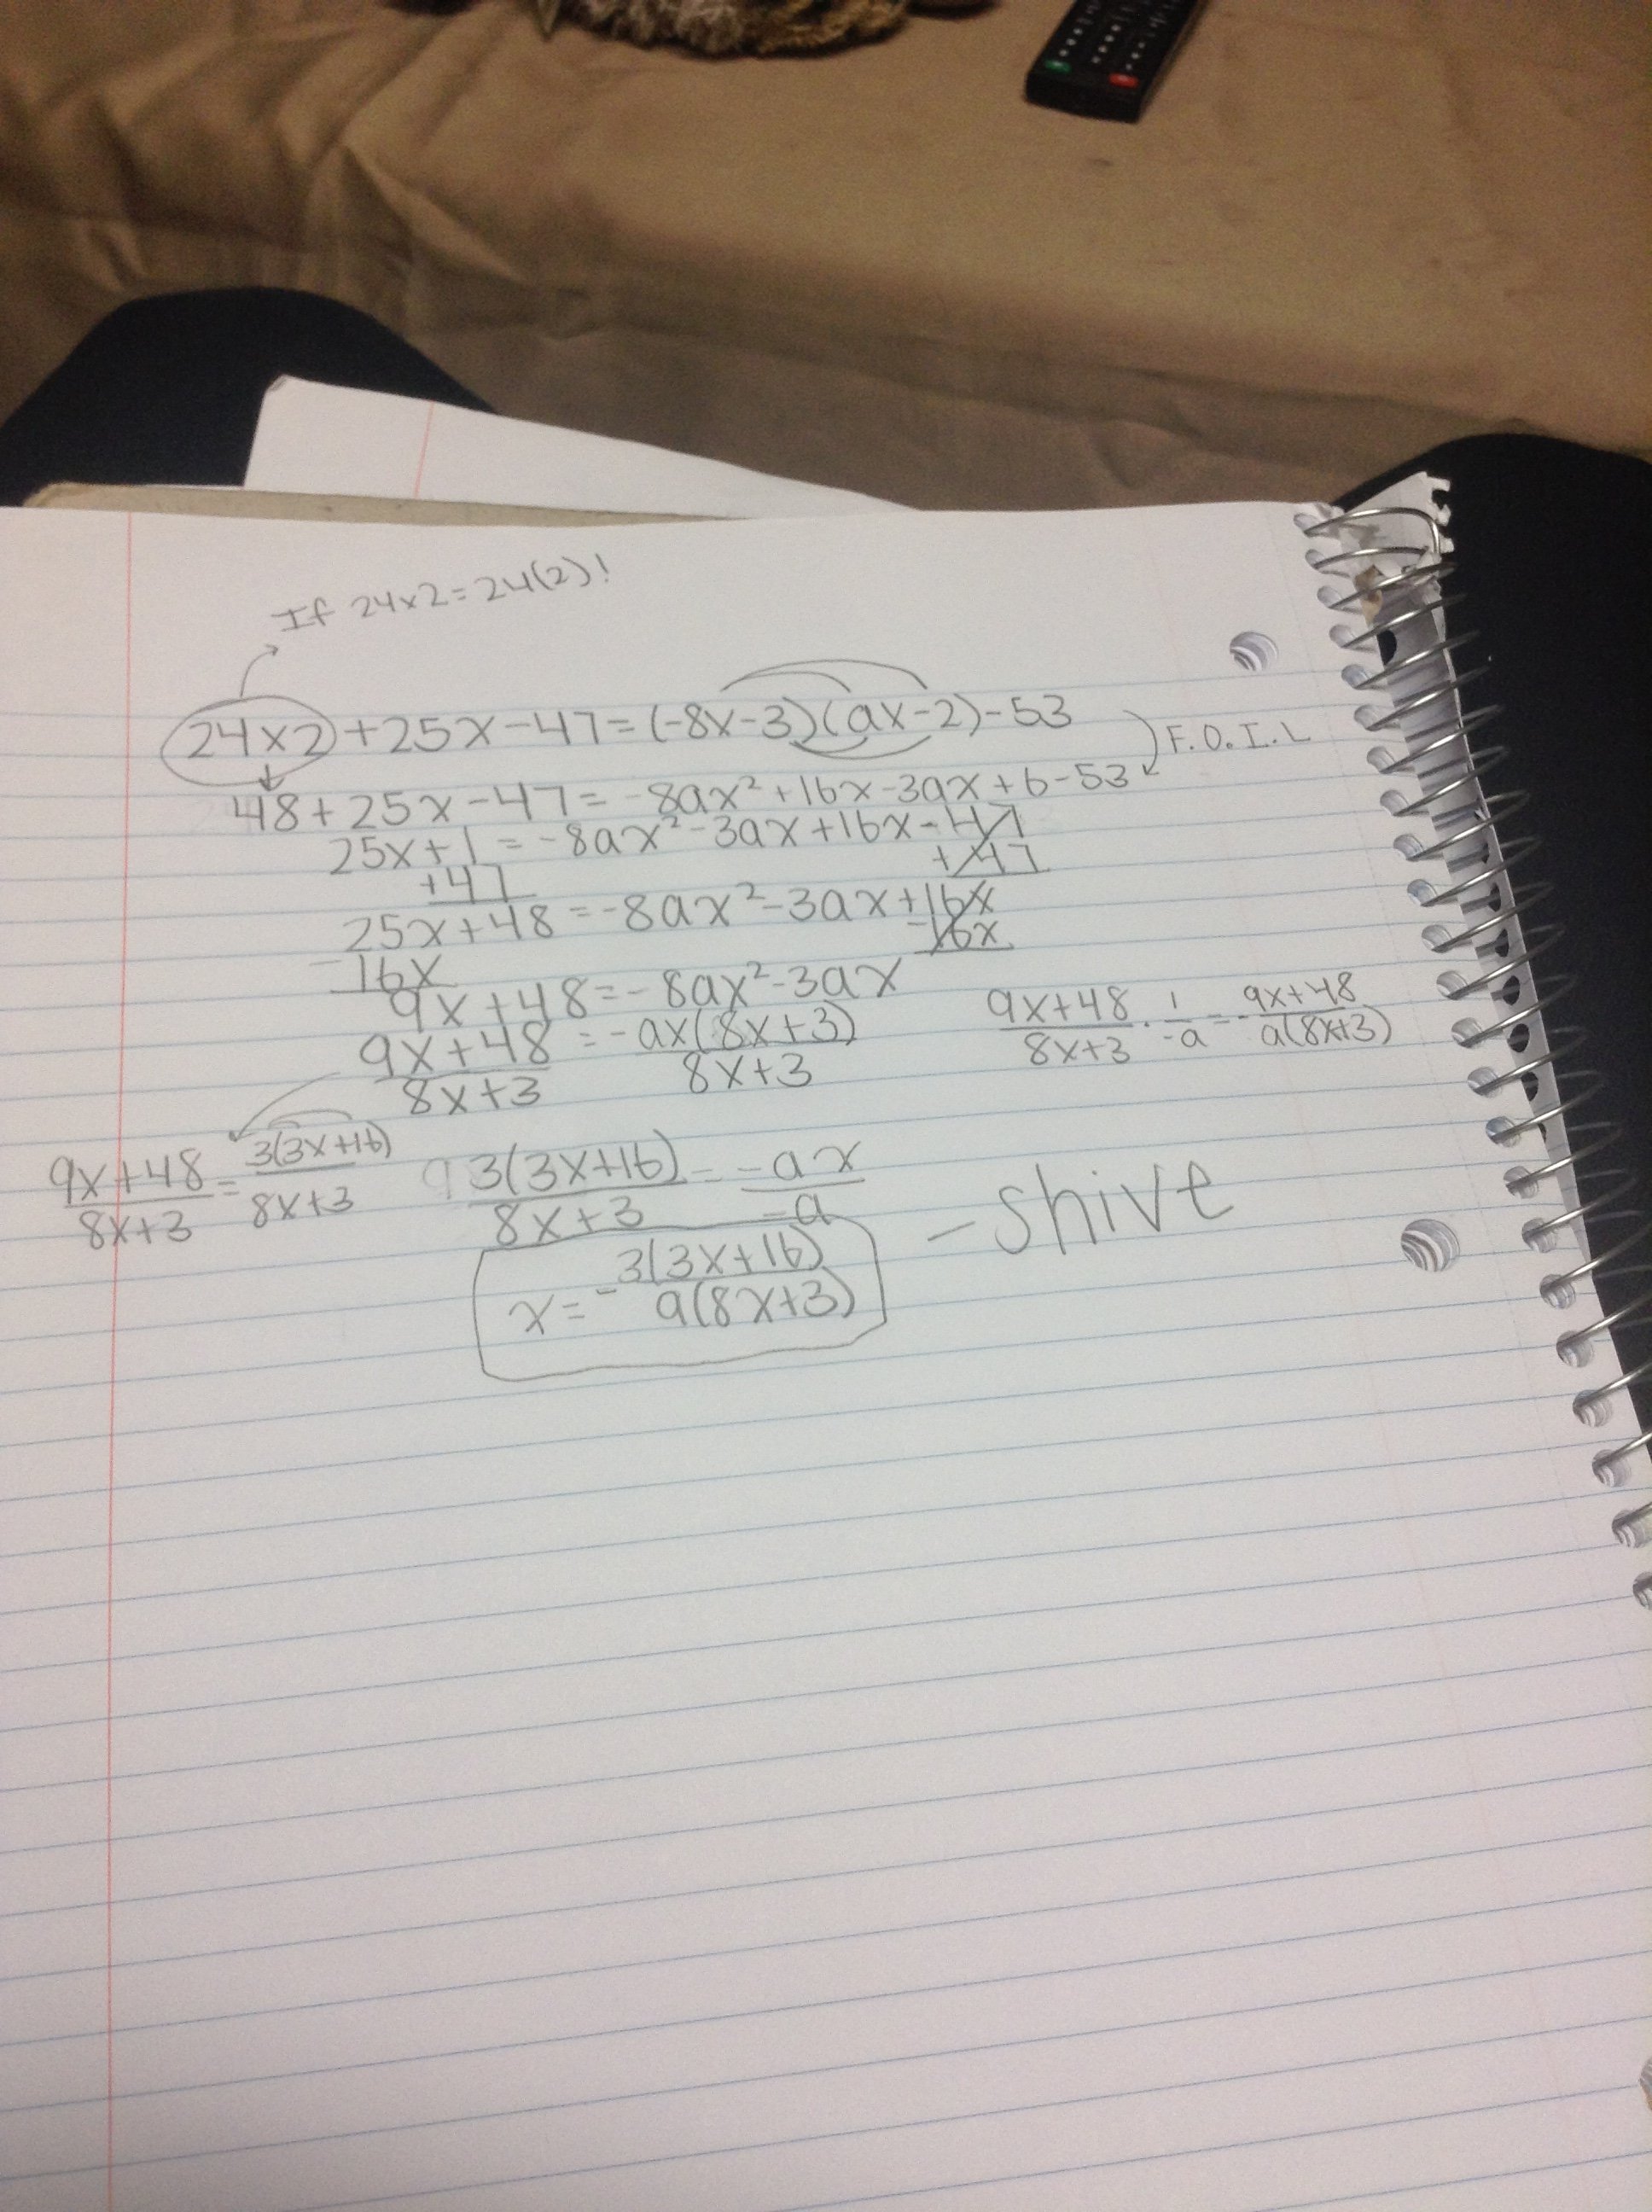 If 24x2=24(2)!
24x2+25x-47=(-8x-3)(ax-2)-53
F.O.I.L
48+25x-47=-8ax²+16x-3ax+6-53
25x+1=-8ax²-3ax+16x-47
+47 +47
25x+48=-8ax²-3ax+16x
-16x -16x
9x+48=-8ax²-3ax
9x+48 = -ax(8x+3)
8x+3 8x+3
9x+48 · 1 = - 9x+48
8x+3 -a a(8x+3)
9x+48 = 3(3x+16)
8x+3 8x+3
3(3x+16) = -ax
8x+3 -a
x = - 3(3x+16)
a(8x+3)
-shive